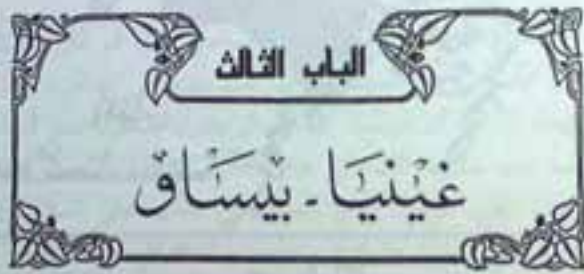 الباب الثالث
غينيَا - بيسَاو